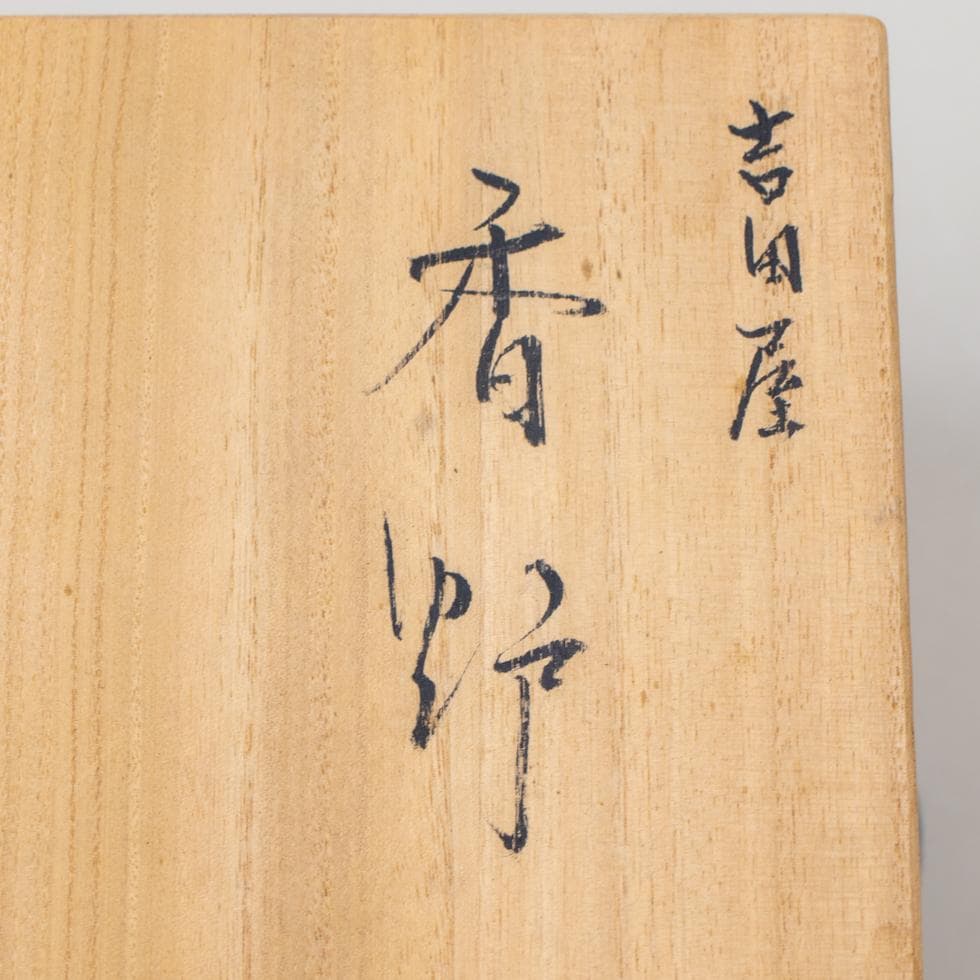 吉田屋
香野